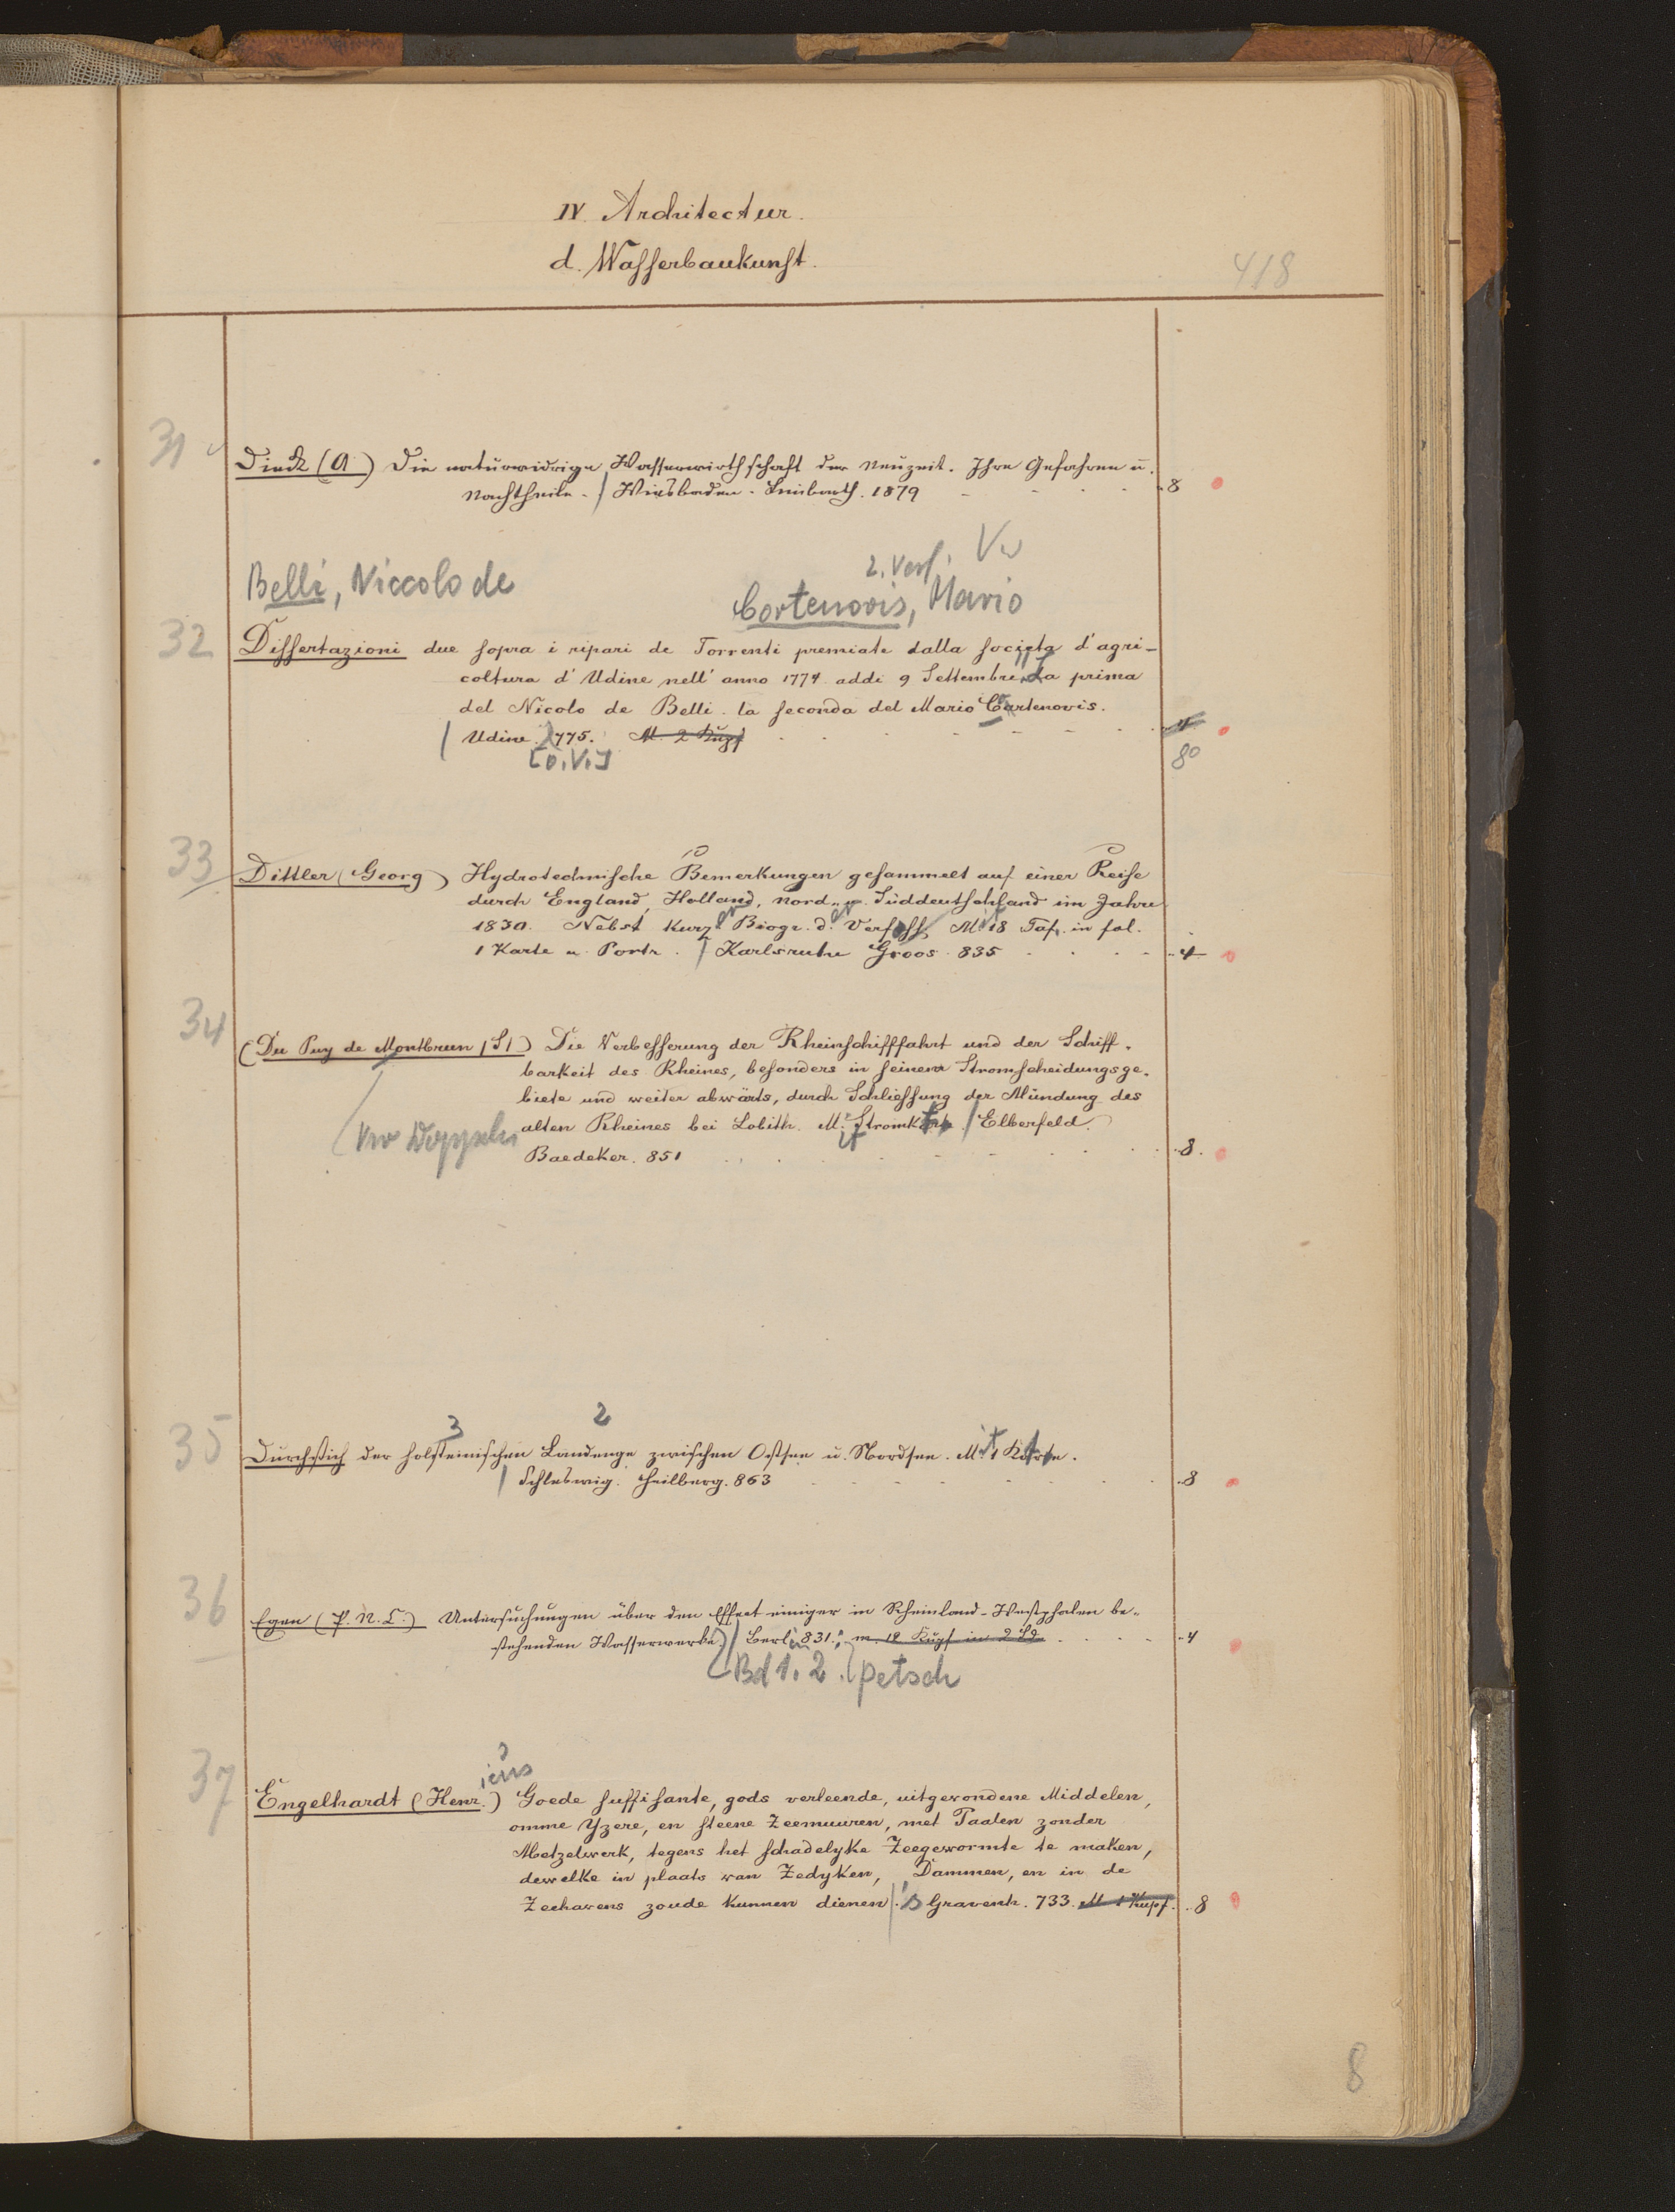 IV. Architectur.
d. Wasserbaukunst.
418
31
Dieck (A) Die naturwidrige Wasserwirthschaft der Neuzeit. Ihre Gefahren u.
Nachtheile. / Wiesbaden. Limbarth. 1879 8
2. Verf. Vw
Belli, Niccolo de
Cortenovis, Mario
32
Dissertazioni due sopra i ripari de Torrenti premiate dalla società d'agri-
coltura d'Udine nell' anno 1774 addi 9 Settembre. La prima
del Nicolo de Belli. la seconda del Mario Cortenovis.
/ Udine. 1775. M. 2 Kupf 4
[o. V.] 8°
33
Dittler (Georg) Hydrotechnische Bemerkungen gesammelt auf einer Reise
durch England, Holland, Nord- u. Süddeutschland im Jahre
1830. Nebst kurz. Biogr. d. Verfass. Mit 18 Taf. in fol.
1 Karte u. Portr. / Karlsruhe Groos. 835 4
34
(Du Puy de Montbrun /S/) Die Verbesserung der Rheinschifffahrt und der Schiff-
barkeit des Rheines, besonders in seinem Stromscheidungsge-
biete und weiter abwärts, durch Schliessung der Mündung des
alten Rheines bei Lobith. M. Stromkarte. / Elberfeld.
Baedeker. 851 8.
3 2
35
Durchstich der holsteinischen Landenge zwischen Ostsee u. Nordsee. Mit 1 Karte.
/ Schleswig. Heilberg. 863 8
36
Egen (P. N. C.) Untersuchungen über den Effect einiger in Rheinland-Westphalen be-
stehenden Wasserwerke. / Berlin 831. m. 18 Kupf in 2 Bd 4
Bd 1. 2. Petsch
37
icus
Engelhardt (Henr.) Goede suffisante, gods verleende, uitgevondene Middelen,
omme Yzere, en steene Zeemuuren, met Paalen zonder
Metzelwerk, tegens het schadelyke Zeegewormte te maken,
dewelke in plaats van Zedyken, Dammen, en in de
Zeehavens zoude kunnen dienen. / 's Gravenh. 733. M 1 Kupf. 8
8